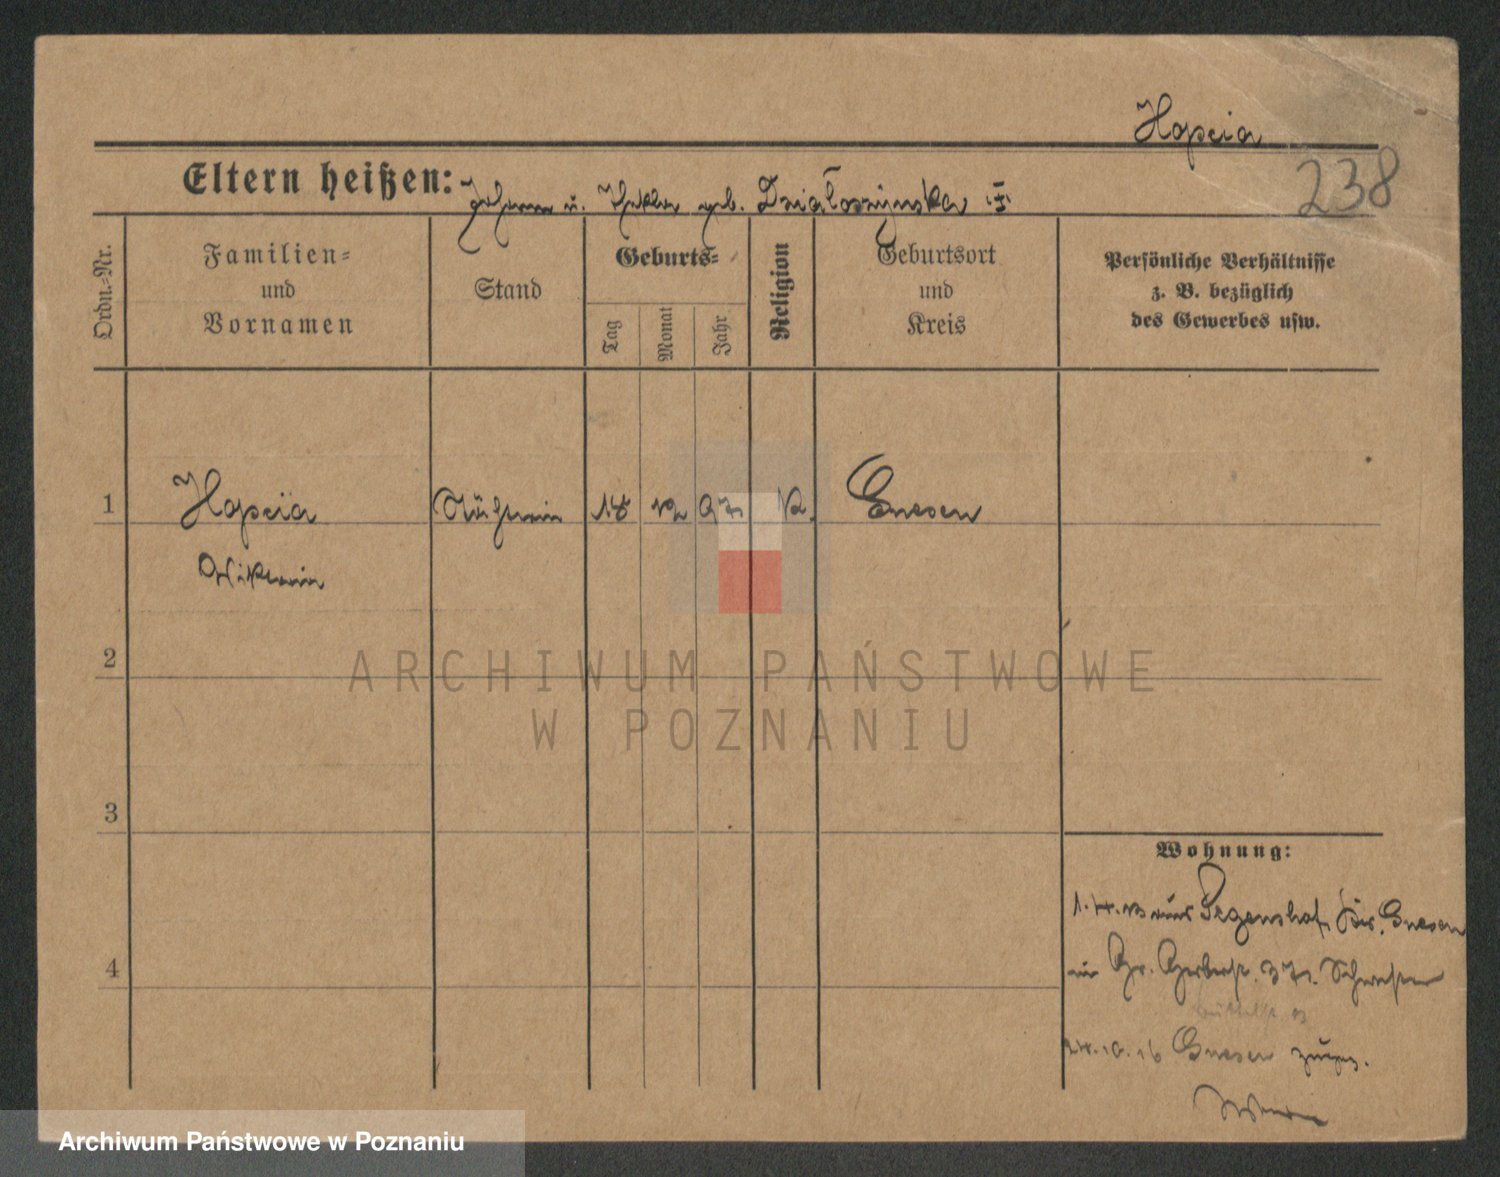 Hapcia
238
Eltern heißen: Johann u. Thekla geb. Działoszyńska
Ordn.-Nr.
Familien-
und
Vornamen
Stand
Geburts-
Tag
Monat
Jahr
Religion
Geburtsort
und
Kreis
Persönliche Verhältnisse
z. B. bezüglich
des Gewerbes usw.
1 Hapcia 18 12 97 K. Gnesen
2
3
4
Wohnung:
Gnesen
Gr. Gerberstr. 37
24.10.16 Gnesen
ARCHIWUM PAŃSTWOWE
W POZNANIU
Archiwum Państwowe w Poznaniu